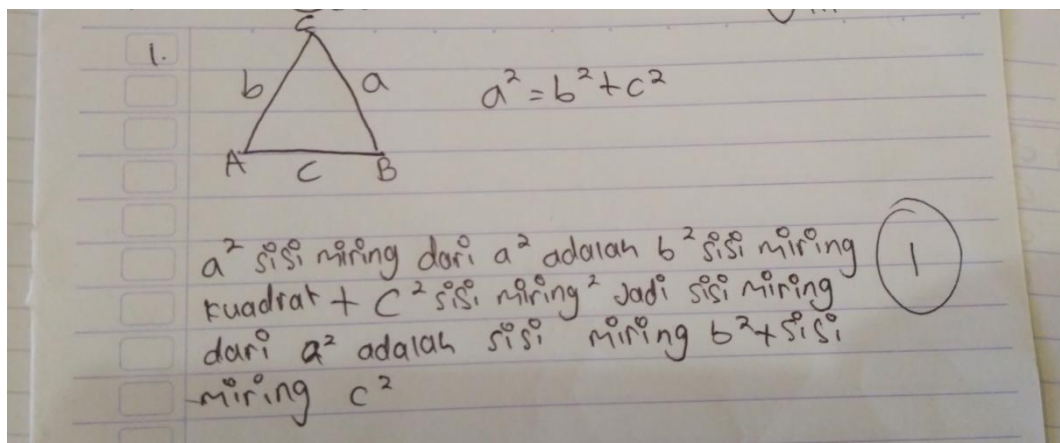 1.
C
b
a
a² = b² + c²
A
C
B
a² sisi miring dari a² adalah b² sisi miring
kuadrat + C² sisi miring² Jadi sisi miring
dari a² adalah sisi miring b² + sisi
miring c²
1